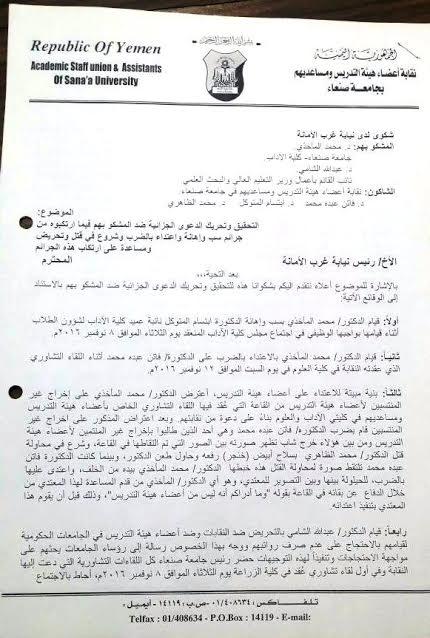 بسم الله الرحمن الرحيم
Republic Of Yemen
Academic Staff union & Assistants
Of Sana'a University
الجمهورية اليمنية
نقابة أعضاء هيئة التدريس ومساعديهم
بجامعة صنعاء
شكوى لدى نيابة غرب الأمانة
المشكو بهم: د. محمد المأخذي
جامعة صنعاء- كلية الآداب
د. عبدالله الشامي
نائب القائم بأعمال وزير التعليم العالي والبحث العلمي
الشاكون: نقابة أعضاء هيئة التدريس ومساعديهم في جامعة صنعاء
د. فاتن عبده محمد د. ابتسام المتوكل د. محمد الظاهري
الموضوع:
التحقيق وتحريك الدعوى الجزائية ضد المشكو بهم فيما ارتكبوه من
جرائم سب وإهانة واعتداء بالضرب وشروع في قتل وتحريض
ومساعدة على ارتكاب هذه الجرائم
الأخ/ رئيس نيابة غرب الأمانة المحترم
بعد التحية,,,
بالإشارة للموضوع أعلاه نتقدم اليكم بشكوانا هذه للتحقيق وتحريك الدعوى الجزائية ضد المشكو بهم بالاستناد
إلى الوقائع الآتية:
أولاً: قيام الدكتور/ محمد المأخذي بسب وإهانة الدكتورة ابتسام المتوكل نائبة عميد كلية الآداب لشؤون الطلاب
أثناء قيامها بواجبها الوظيفي في اجتماع مجلس كلية الآداب المنعقد يوم الثلاثاء الموافق ٨ نوفمبر ٢٠١٦م.
ثانياً: قيام الدكتور/ محمد المأخذي بالاعتداء بالضرب على الدكتورة/ فاتن عبده محمد أثناء اللقاء التشاوري
الذي عقدته النقابة في كلية العلوم في يوم السبت الموافق ١٢ نوفمبر ٢٠١٦م.
ثالثاً: بنية مبيتة للاعتداء على أعضاء هيئة التدريس، أعترض الدكتور/ محمد المأخذي على إخراج غير
المنتسبين لأعضاء هيئة التدريس من القاعة التي عُقد فيها اللقاء التشاوري الخاص بأعضاء هيئة التدريس
ومساعديهم في كليتي الآداب والعلوم بناءً على دعوة من نقابتهم. وبعد اعتراض المذكور على إخراج غير
المنتسبين قام بضرب الدكتورة/ فاتن عبده محمد وهي أحد الذين طالبوا بإخراج غير المنتمين لأعضاء هيئة
التدريس ومن بين هؤلاء خرج شاب تظهر صورته بين الصور التي تم التقاطها في القاعة، وشرع في محاولة
قتل الدكتور/ محمد الظاهري بسلاح أبيض (خنجر) رفعه وحاول طعن الدكتور، وبينما كانت الدكتورة فاتن
عبده محمد تلتقط صورة لمحاولة القتل هذه خبطها الدكتور/ محمد المأخذي بيده من الخلف، واعتدى عليها
بالضرب، للحيلولة بينها وبين التصوير للمعتدي، وهو أي الدكتور/ المأخذي من قدم المساعدة لهذا المعتدي من
خلال الدفاع عن بقائه في القاعة بقوله "وما أدراكم أنه ليس من أعضاء هيئة التدريس"، وذلك قبل أن يقوم هذا
المعتدي بتنفيذ اعتدائه.
رابعاً: قيام الدكتور/ عبدالله الشامي بالتحريض ضد النقابات وضد أعضاء هيئة التدريس في الجامعات الحكومية
لقيامهم بالاحتجاج على عدم صرف رواتبهم ووجه بهذا الخصوص رسالة إلى رؤساء الجامعات يحثهم على
مواجهة الاحتجاجات وتنفيذاً لهذه التوجيهات حضر رئيس جامعة صنعاء كل اللقاءات التشاورية التي دعت إليها
النقابة وفي أول لقاء تشاوري عُقد في كلية الزراعة يوم الثلاثاء الموافق ٨ نوفمبر ٢٠١٦م، أحاط بالاجتماع
تلفاكس: ٠١/٤٠٨٦٣٤ - ص.ب: ١٤١١٩ - ايميل:
Telfax : 01/408634 - P.O.Box : 14119 - E-mail: